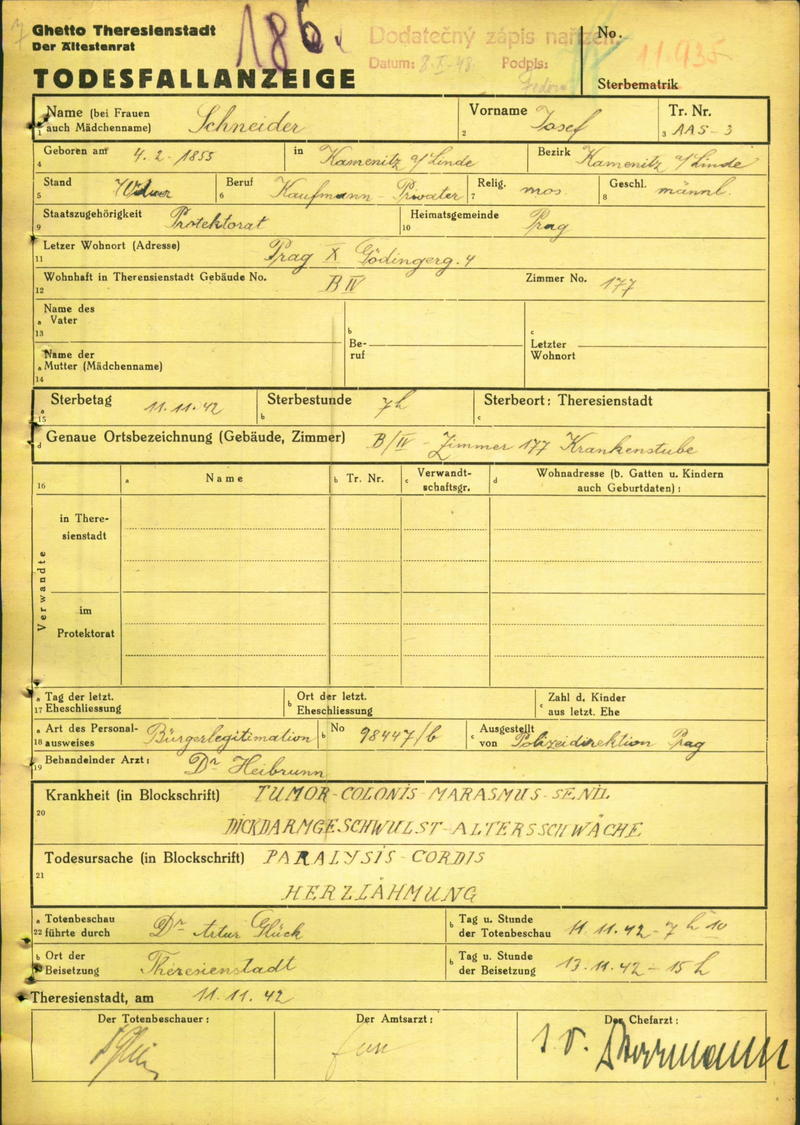 Ghetto Theresienstadt
Der Ältestenrat
TODESFALLANZEIGE
186.
Dodatečný zápis nařízen.
Datum: 8-I-48. Podpis:
No. 11.935
Sterbematrik
Name (bei Frauen auch Mädchenname) Schneider
1
Vorname Josef
2
Tr. Nr.
3 AAS-3
4 Geboren am 4.2.1855 in Kamenitz a/Linde Bezirk Kamenitz a/Linde
5 Stand
6 Beruf Kaufmann - Privater
7 Relig. mos
8 Geschl. männl.
9 Staatszugehörigkeit Protektorat
10 Heimatsgemeinde Prag
11 Letzer Wohnort (Adresse) Prag X Gödingerg. 4
12 Wohnhaft in Therensienstadt Gebäude No. B IV Zimmer No. 177
13 a Name des Vater
b Beruf
c Letzter Wohnort
14 a Name der Mutter (Mädchenname)
15 a Sterbetag 11.11.42
b Sterbestunde 7h
c Sterbeort: Theresienstadt
d Genaue Ortsbezeichnung (Gebäude, Zimmer) B/IV - Zimmer 177 Krankenstube
16 a Name
b Tr. Nr.
c Verwandt-
schaftsgr.
d Wohnadresse (b. Gatten u. Kindern
auch Geburtdaten):
Verwandte
in There-
sienstadt
im
Protektorat
17 a Tag der letzt.
Eheschliessung
b Ort der letzt.
Eheschliessung
c Zahl d. Kinder
aus letzt. Ehe
18 a Art des Personal-
ausweises Bürgerlegitimation
b No 98447/6
c Ausgestellt
von Polizeidirektion Prag
19 Behandelnder Arzt: Dr Heibrunn
20 Krankheit (in Blockschrift) TUMOR-COLONIS-MARASMUS-SENIL
DICKDARMGESCHWULST-ALTERSSCHWÄCHE
21 Todesursache (in Blockschrift) PARALYSIS-CORDIS
HERZLÄHMUNG
22 a Totenbeschau
führte durch Dr Artur Glück
b Tag u. Stunde
der Totenbeschau 11.11.42-7h 10
b Ort der
Beisetzung Theresienstadt
b Tag u. Stunde
der Beisetzung 13.11.42-15h
Theresienstadt, am 11.11.42
Der Totenbeschauer:
Der Amtsarzt:
Der Chefarzt: